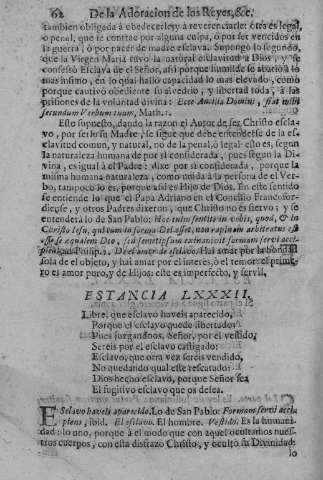 62 De la Adoracion de los Reyes,&c.
tambien obligada à obedecerle, y à reverenciarle: otra es legal,
ò penal, que se contrae por alguna culpa, ò por ser vencidos en
la guerra, ò por nacer de madre esclava. Supongo lo segundo,
que la Virgen Maria tuvo la natural esclavitud à Dios, y se
confessò Esclava de el Señor, assi porque humilde se abatiò à lo
mas infimo, en lo qual hallò capacidad lo mas elevado, como
porque cautivò obediente su alvedrio, y libertad toda, à las
prisiones de la voluntad divina: Ecce Ancilla Domini, fiat mihi
secundum Verbum tuum, Math. 1.
Esto supuesto, dando la razon el Autor de ser Christo escla-
vo, por serlo su Madre, se sigue que debe entenderse de la es-
clavitud comun, y natural, no de la penal, ò legal: esto es, segun
la naturaleza humana de por sì considerada, pues segun la Di-
vina, es igual à el Padre: dixe por sì considerada, porque la
misma humana naturaleza, como unida à la persona de el Ver-
bo, tampoco lo es, porque assi es Hijo de Dios. En este sentido
se entiende lo que el Papa Adriano en el Concilio Francofor-
diense, y otros Padres dixeron, que Christo no es siervo: y se
entenderà lo de San Pablo: Hoc enim sentite in vobis, quod, & in
Christo Iesu, qui cum in forma Dei esset, non rapinam arbitratus est
esse se æqualem Deo, sed semetipsum exinanivit formam servi acci-
piens, ad Philip. 2. De el amor de esclavo. Hai amar por la bondad
sola de el objeto, y hai amar por el interès, ò el temor: el prime-
ro es amor puro, y de Hijos: este es imperfecto, y servil,
ESTANCIA LXXXII.
Libre, que esclavo haveis aparecido,
Porque el esclavo quede libertador
Pues juzgandoos, Señor, por el vestido,
Sereis por el esclavo castigado:
Esclavo, que otra vez sereis vendido,
No quedando qual este rescatado:
Dios hecho esclavo, porque Señor sea
El fugitivo esclavo que os desea.
ESclavo haveis aparecido. Lo de San Pablo: Formam servi acci-
piens, ibid. El esclavo. El hombre. Vestido. Es la humani-
dad: lo uno, porque à el modo que con aquel ocultamos nues-
tros cuerpos, con esta disfrazò Christo, y ocultò su Divinidad:
lo